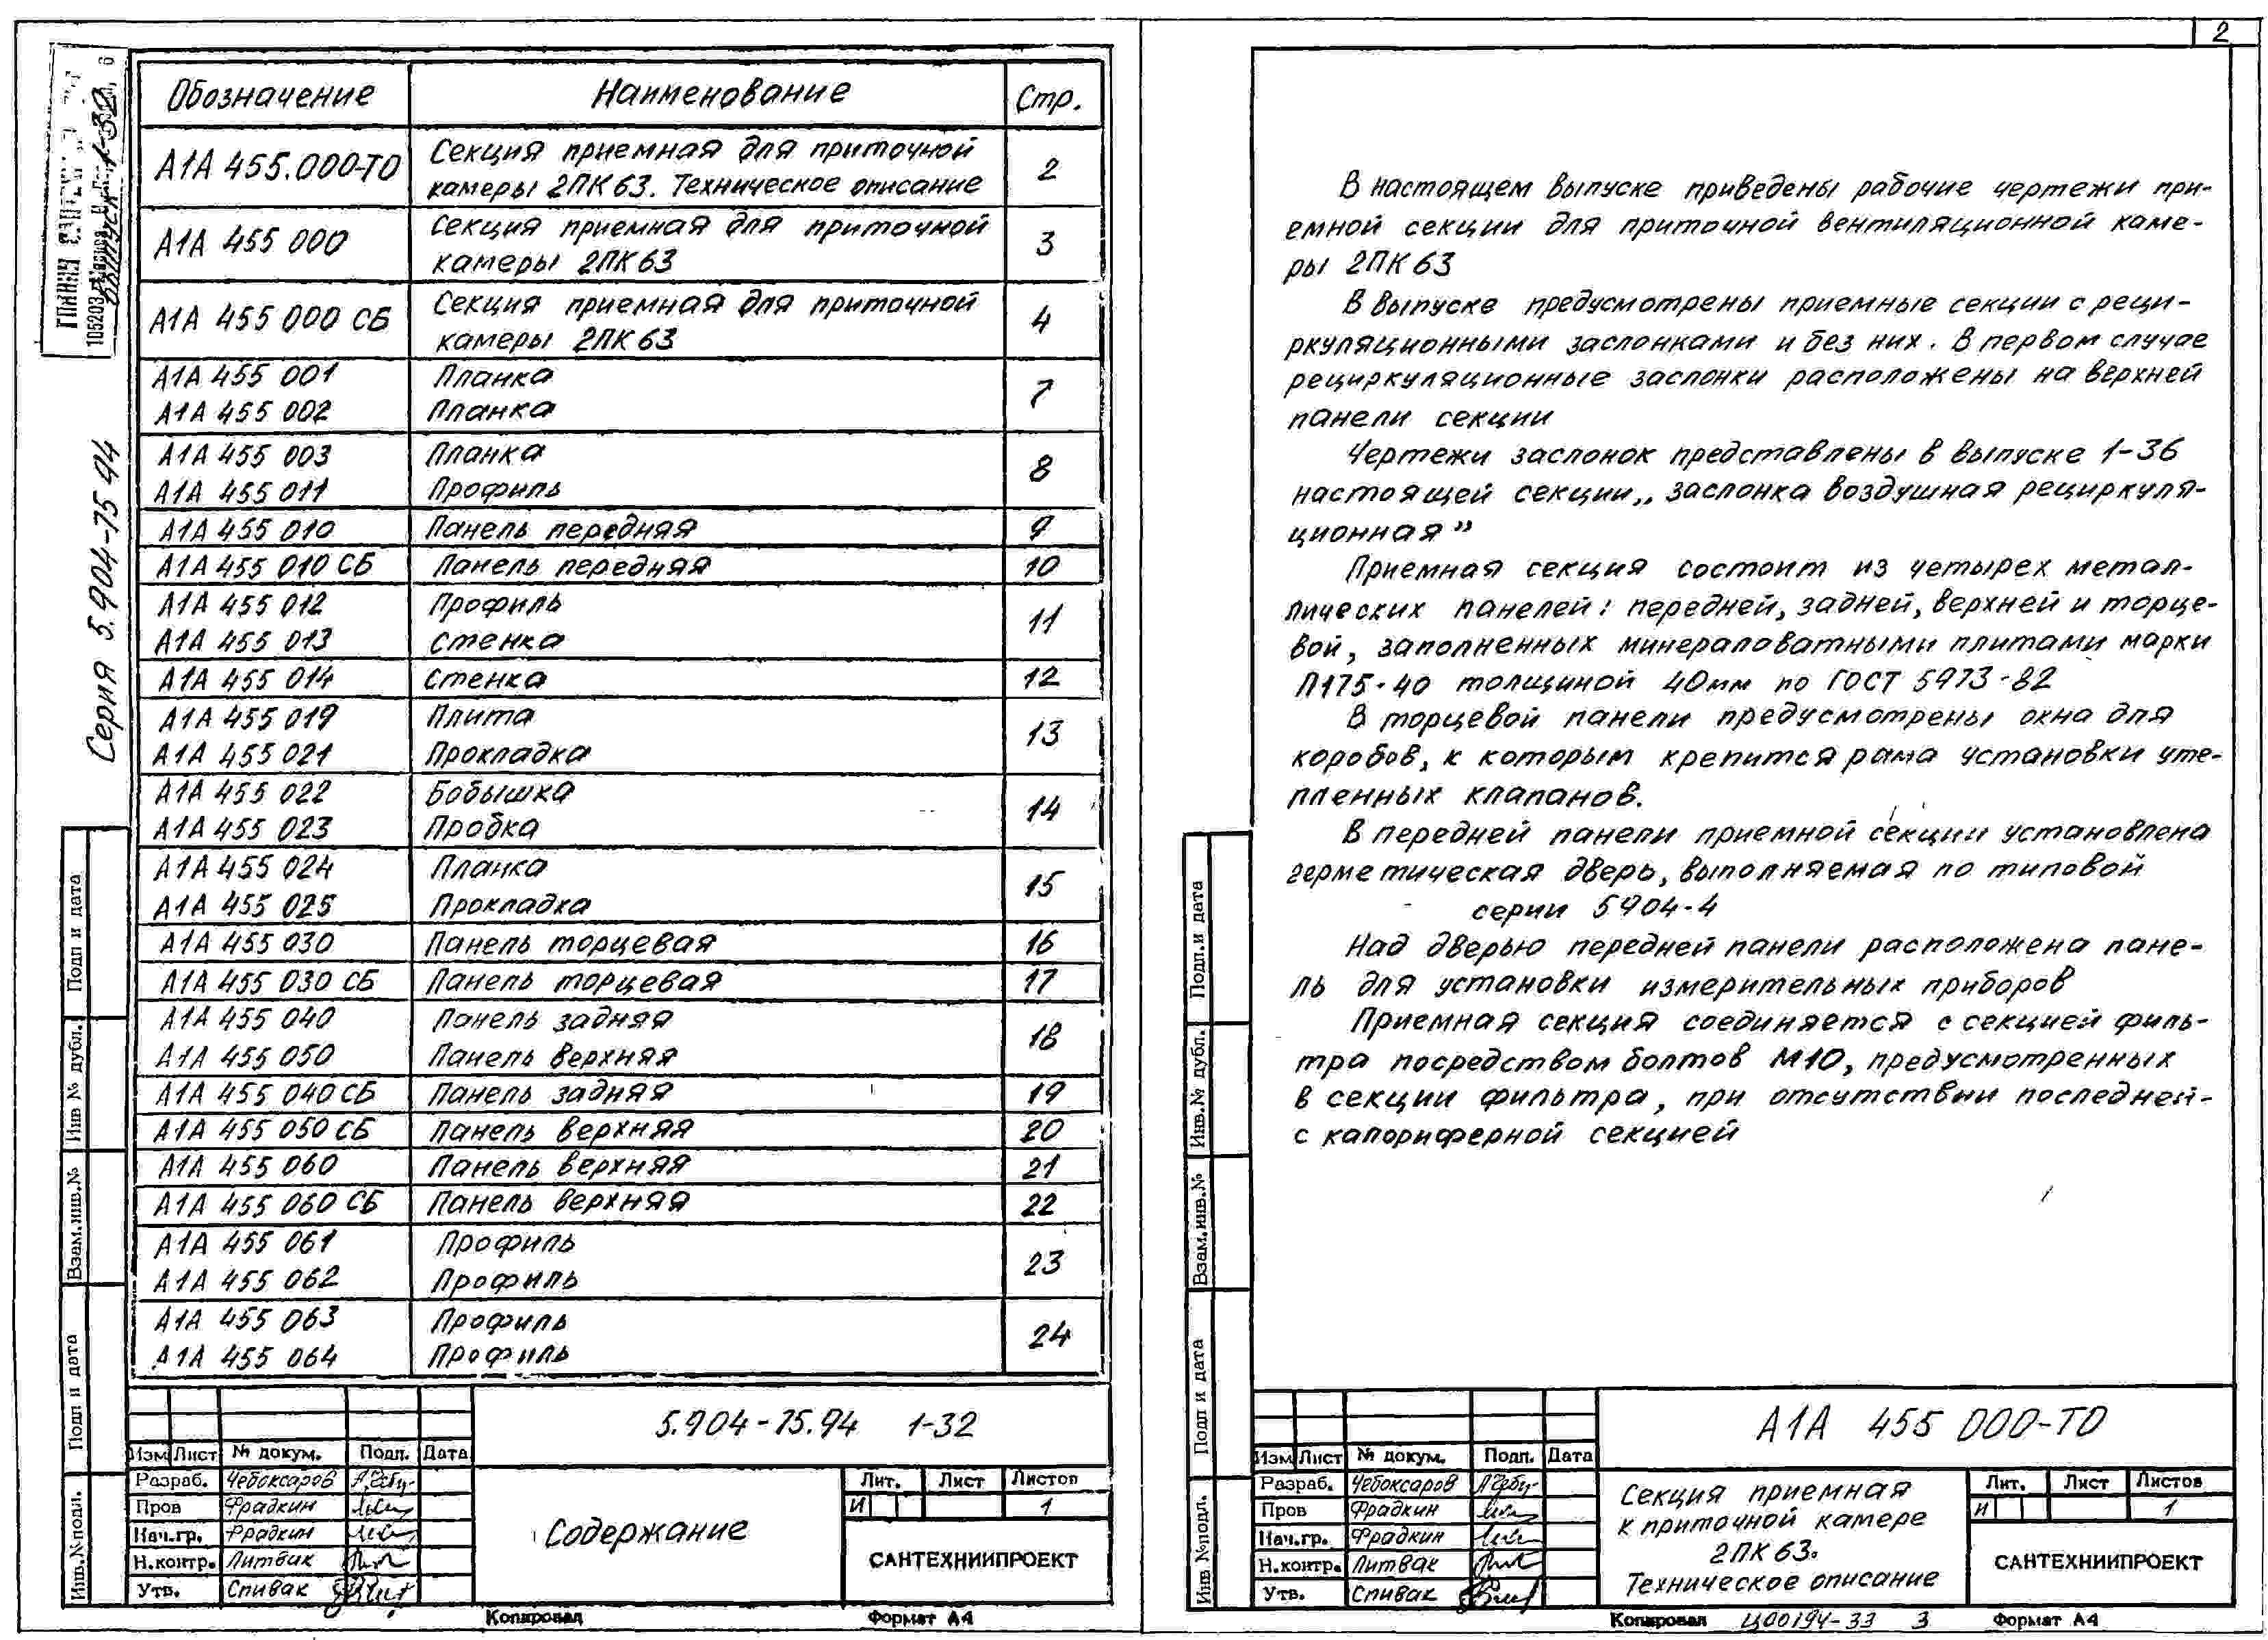 Обозначение Наименование Стр.
А1А 455.000-ТО Секция приемная для приточной камеры 2ПК 63. Техническое описание 2
А1А 455 000 Секция приемная для приточной камеры 2ПК 63 3
А1А 455 000 СБ Секция приемная для приточной камеры 2ПК 63 4
А1А 455 001 Планка 7
А1А 455 002 Планка
А1А 455 003 Планка 8
А1А 455 011 Профиль
А1А 455 010 Панель передняя 9
А1А 455 010 СБ Панель передняя 10
А1А 455 012 Профиль 11
А1А 455 013 Стенка
А1А 455 014 Стенка 12
А1А 455 019 Плита 13
А1А 455 021 Прокладка
А1А 455 022 Бобышка 14
А1А 455 023 Пробка
А1А 455 024 Планка 15
А1А 455 025 Прокладка
А1А 455 030 Панель торцевая 16
А1А 455 030 СБ Панель торцевая 17
А1А 455 040 Панель задняя 18
А1А 455 050 Панель верхняя
А1А 455 040 СБ Панель задняя 19
А1А 455 050 СБ Панель верхняя 20
А1А 455 060 Панель верхняя 21
А1А 455 060 СБ Панель верхняя 22
А1А 455 061 Профиль 23
А1А 455 062 Профиль
А1А 455 063 Профиль 24
А1А 455 064 Профиль
Серия 5.904-75 94
Подп и дата
Инв № дубл.
Взам.инв.№
Подп и дата
Инв.№подл.
5.904-75.94 1-32
Изм Лист № докум. Подп. Дата
Разраб. Чебоксаров
Пров Фрадкин
Нач.гр. Фрадкин
Н.контр. Литвак
Утв. Спивак
Содержание
Лит. Лист Листов
И 1
САНТЕХНИИПРОЕКТ
Копировал Формат А4
2
В настоящем выпуске приведены рабочие чертежи при-
емной секции для приточной вентиляционной каме-
ры 2ПК 63
В выпуске предусмотрены приемные секции с реци-
ркуляционными заслонками и без них. В первом случае
рециркуляционные заслонки расположены на верхней
панели секции
Чертежи заслонок представлены в выпуске 1-36
настоящей секции „заслонка воздушная рециркуля-
ционная”
Приемная секция состоит из четырех метал-
лических панелей: передней, задней, верхней и торце-
вой, заполненных минераловатными плитами марки
П175-40 толщиной 40мм по ГОСТ 5973-82
В торцевой панели предусмотрены окна для
коробов, к которым крепится рама установки уте-
пленных клапанов.
В передней панели приемной секции установлена
герметическая дверь, выполняемая по типовой
серии 5904-4
Над дверью передней панели расположена пане-
ль для установки измерительных приборов
Приемная секция соединяется с секцией филь-
тра посредством болтов М10, предусмотренных
в секции фильтра, при отсутствии последней-
с калориферной секцией
Подп.и дата
Инв.№ дубл.
Взам.инв.№
Подп и дата
Инв №подл.
А1А 455 000-ТО
Изм Лист № докум. Подп. Дата
Разраб. Чебоксаров
Пров Фрадкин
Нач.гр. Фрадкин
Н.контр. Литвак
Утв. Спивак
Секция приемная
к приточной камере
2ПК 63.
Техническое описание
Лит. Лист Листов
И 1
САНТЕХНИИПРОЕКТ
Копировал Ц00194-33 3 Формат А4